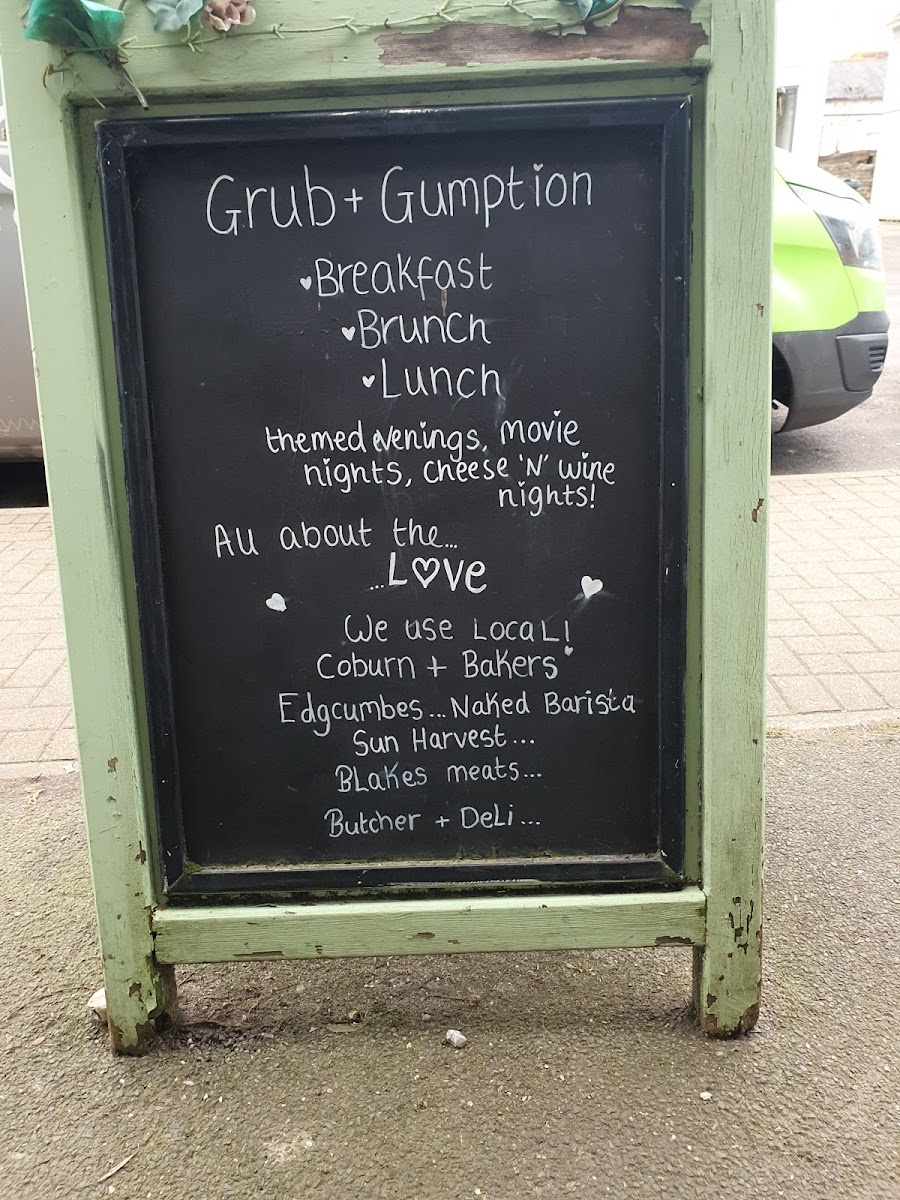 Grub + Gumption
Breakfast
Brunch
Lunch
themed evenings, movie
nights, cheese 'N' wine
nights!
All about the...
...Love
We use LocaL!
Coburn + Bakers
Edgcumbes... Naked Barista
Sun Harvest...
BLakes meats...
Butcher + DeLi...